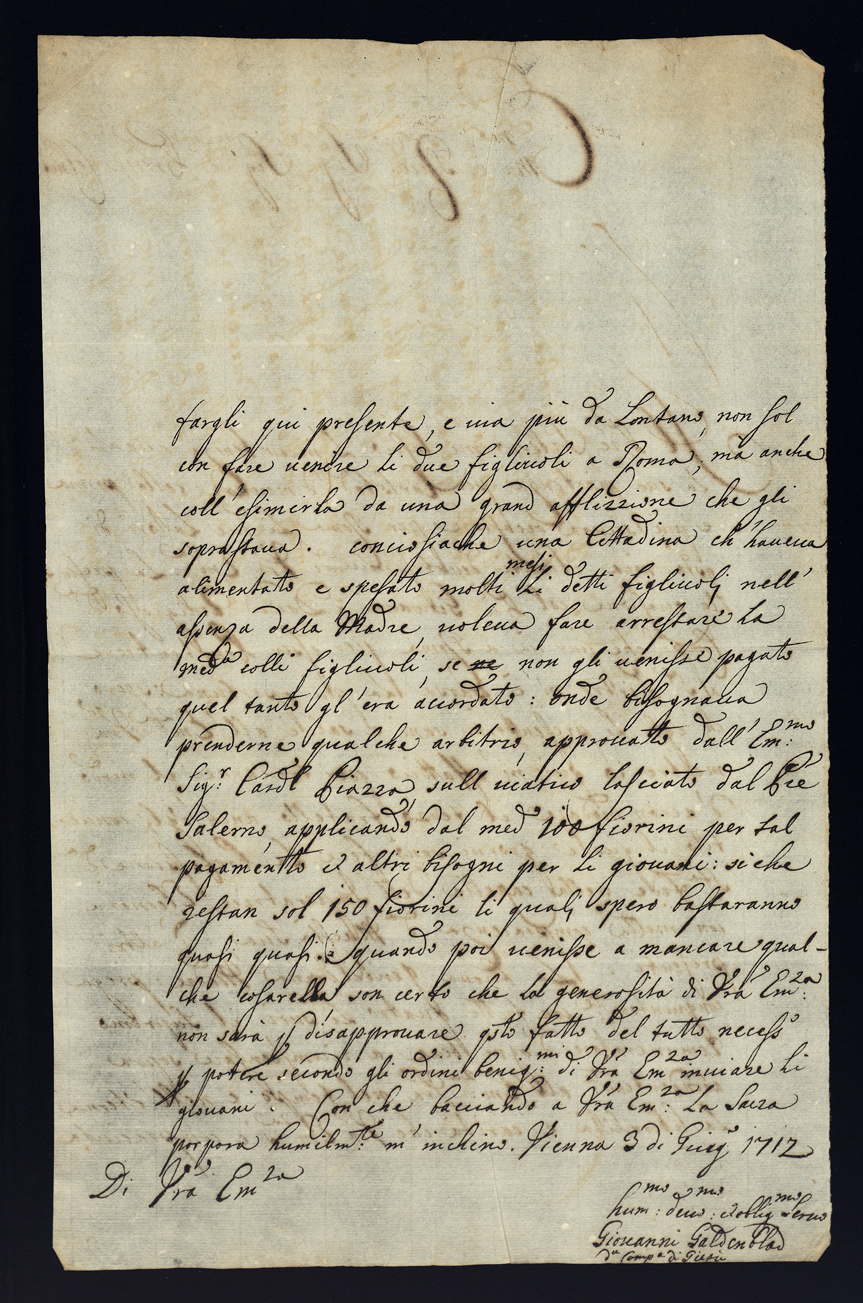 fargli qui presente, e via più da Lontano, non sol
con fare venire li due figliuoli a Roma, mà anche
coll' esimirla da una grand afflizzione che gli
soprastava. conciosiache una Cittadina ch' haveva
alimentato e spesato molti mesi li detti figliuoli nell'
assenza della Madre, voleva fare arrestare la
med.a colli figliuoli, se ne non gli venisse pagato
quel tanto gl' era accordato: onde bisognava
prenderne qualche arbitrio, approvato dall' Em:mo
Sig:r Cardl Piazza, sull viatico lasciato dal Pre
Salerno, applicando dal med 100 fiorini per tal
pagamento et altri bisogni per li giovani: siche
restan sol 150 fiorini li quali spero bastaranno
quasi quasi. e quando poi venisse a mancare qual-
che cosarella son certo che la generosità di Vrà Em:za
non sarà p disapprovare qsto fatto del tutto necess.o
p potere secondo gli ordini benig:mi di Vrà Em:za inviare li
giovani. Con che bacciando a Vrà Em:za La Sacra
porpora humilm:te m' inchino. Vienna 3 di Giug.o 1712
Di Vrà Em:za
hum:mo dev:mo et oblig:mo Servo
Giovanni Galdenblad
d.a Comp.a di Giesù